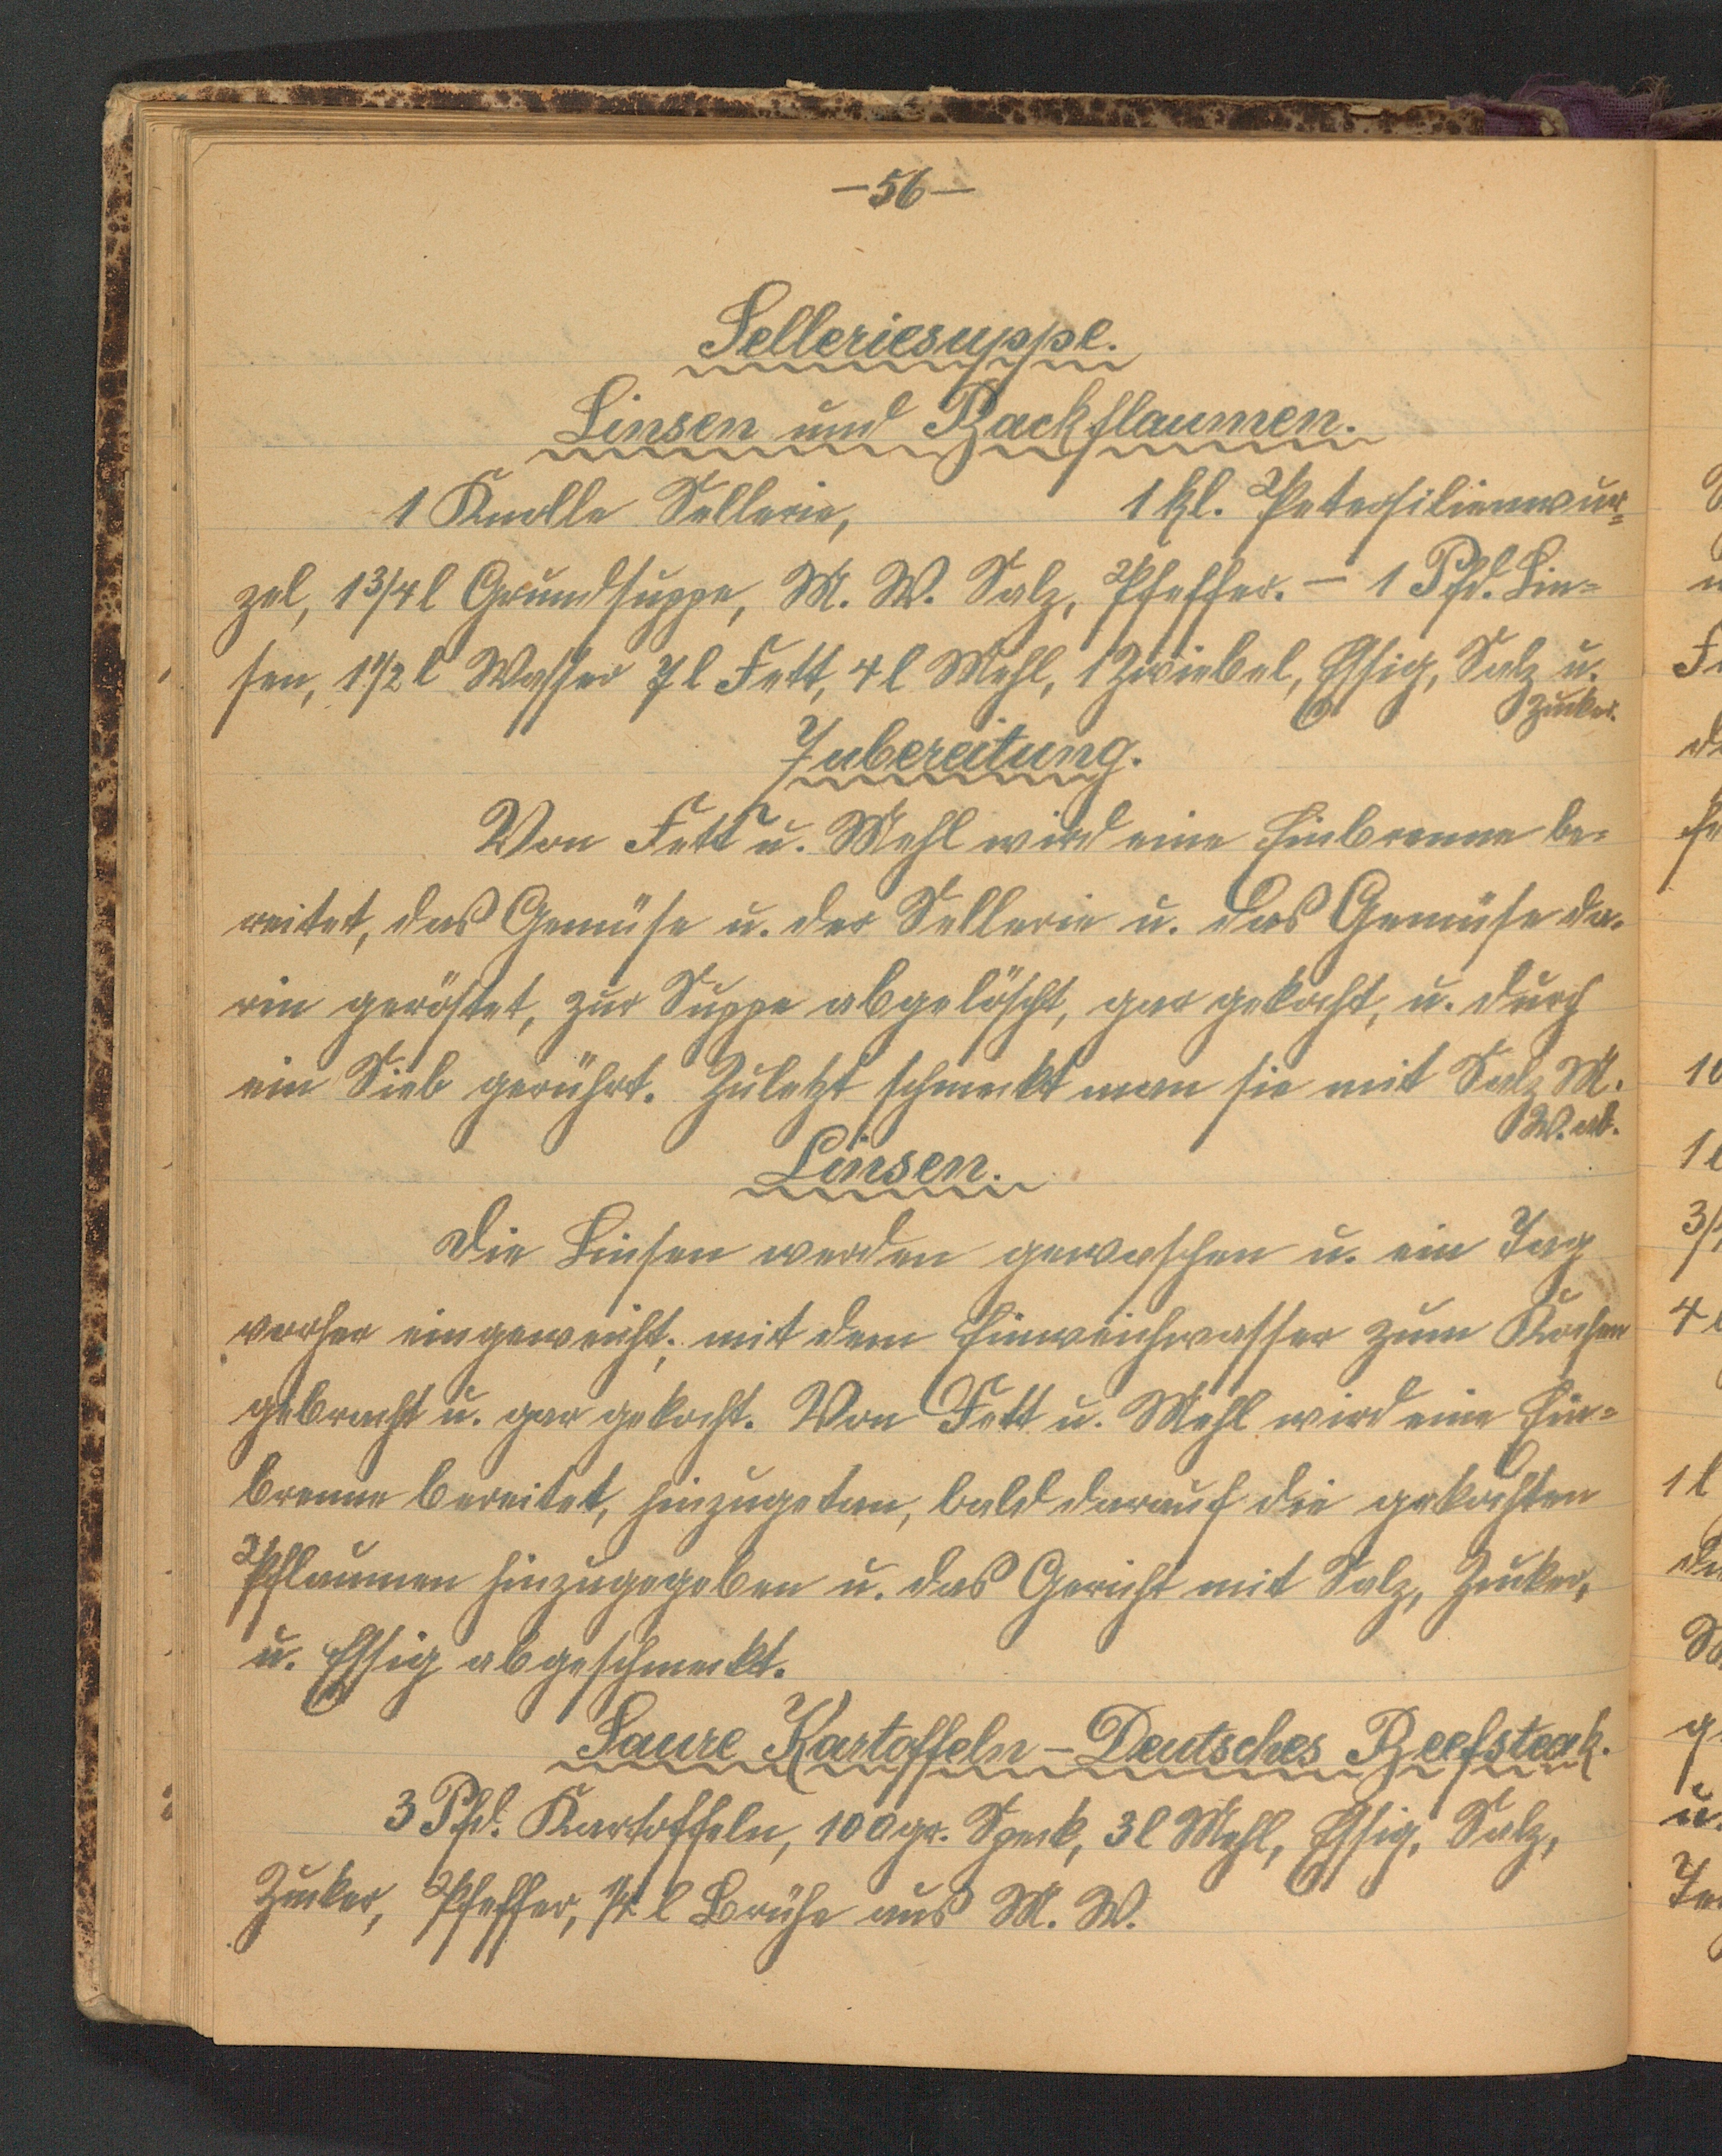 —56—
Selleriesuppe.
Linsen und Backflaumen.
1 Knolle Sellerie, 1 kl. Petersilienwur=
zel, 1 3/4 l Grundsuppe, M. W. Salz, Pfeffer. — 1 Pfd. Lin=
sen, 1 1/2 l Wasser 7 l Fett, 4 l Mehl, 1 Zwiebel, Essig, Salz u.
Zucker.
Zubereitung.
Von Fett u. Mehl wird eine Einbrenne be=
reitet, das Gemüse u. der Sellerie u. das Gemüse da=
rin geröstet, zur Suppe abgelöscht, gar gekocht, u. durch
ein Sieb gerührt. Zuletzt schmeckt man sie mit Salz M.
W. ab.
Linsen.
Die Linsen werden gewaschen u. ein Tag
vorher eingeweicht; mit dem Einweichwasser zum Kochen
gebracht u. gar gekocht. Von Fett u. Mehl wird eine Ein=
brenne bereitet, hinzugetan, bald darauf die gekochten
Pflaumen hinzugegeben u. das Gericht mit Salz, Zucker,
u. Essig abgeschmeckt.
Saure Kartoffeln – Deutsches Beefsteak.
3 Pfd. Kartoffeln, 100 gr. Speck, 3 l Mehl, Essig, Salz,
Zucker, Pfeffer, 1/4 l Brühe aus M. W.